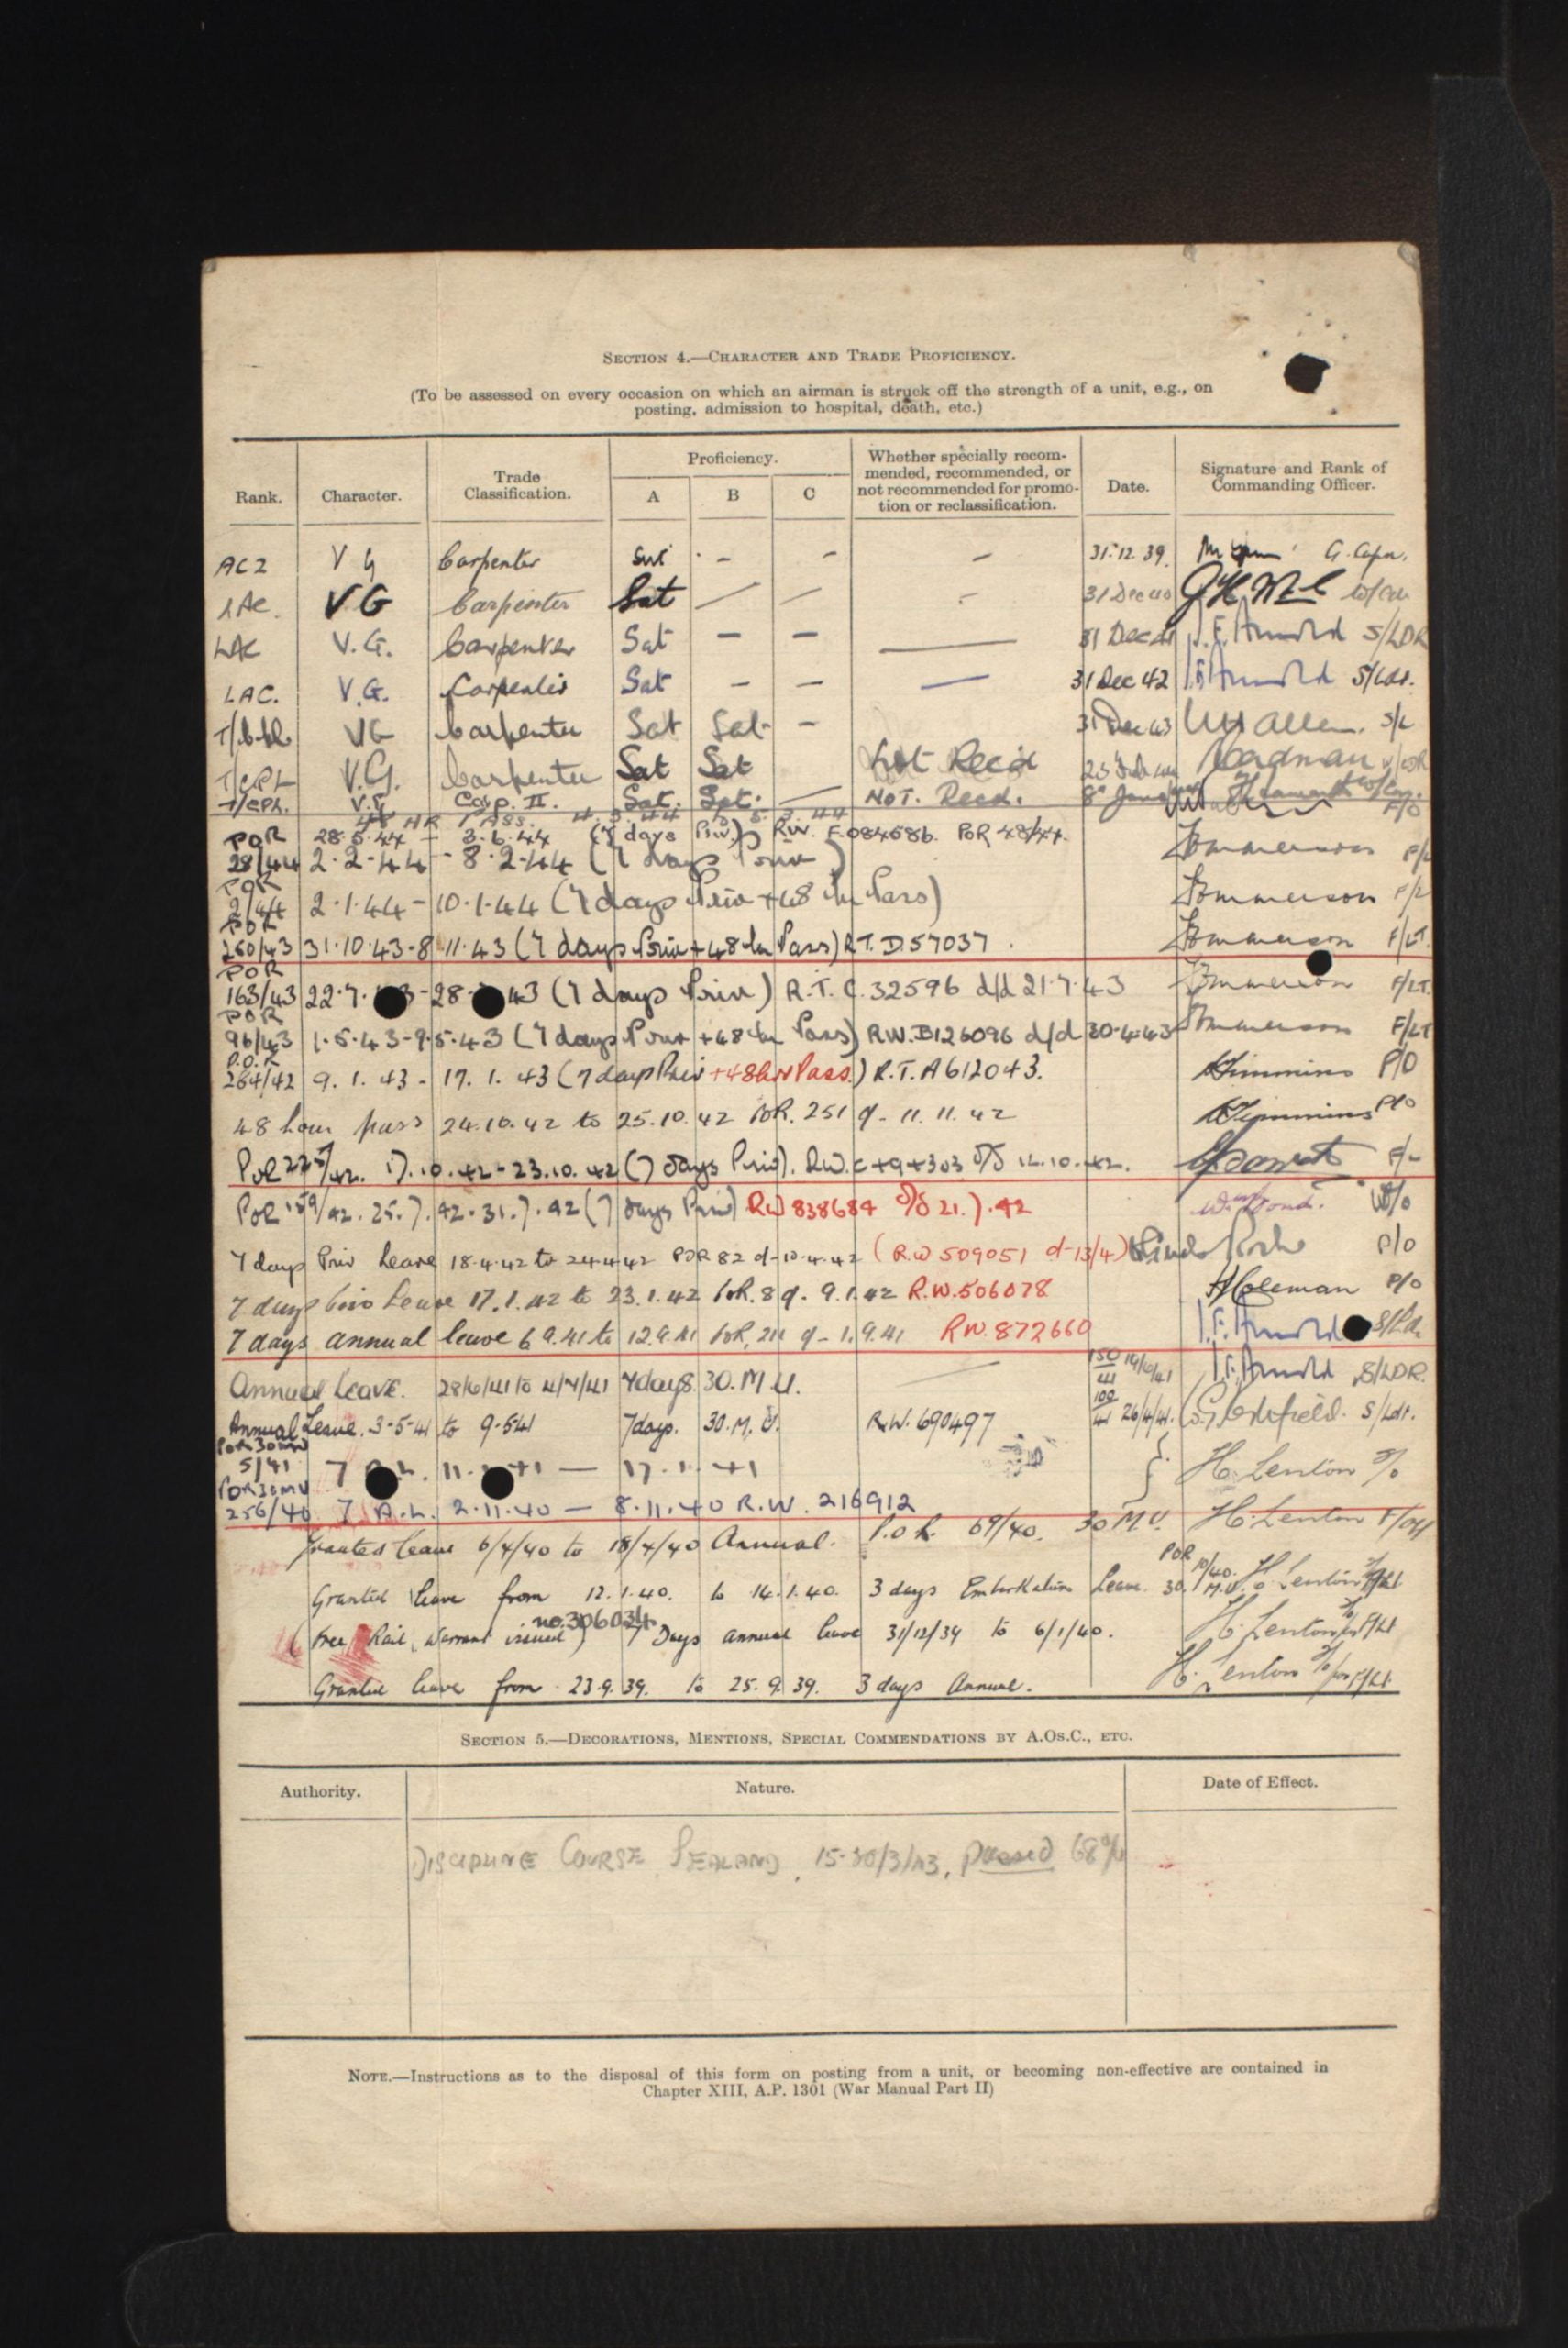 SECTION 4.—CHARACTER AND TRADE PROFICIENCY.
(To be assessed on every occasion on which an airman is struck off the strength of a unit, e.g., on
posting, admission to hospital, death, etc.)
Rank. Character. Trade Classification. Proficiency. A B C Whether specially recommended, recommended, or not recommended for promotion or reclassification. Date. Signature and Rank of Commanding Officer.
AC2 VG Carpenter Sat - - - 31.12.39. G. Capn.
LAC. VG Carpenter Sat — — - 31 Dec 40
LAC V.G. Carpenter Sat — — — 31 Dec 41 J.F. Arnold S/LDR
LAC. V.G. Carpenter Sat — — — 31 Dec 42 J.F. Arnold S/Ldr.
T/Cpl. VG Carpenter Sat Sat — 31 Dec 43 Allen. S/L
T/CPL V.G. Carpenter Sat Sat Not Rec'd
T/CPL. V.G. Carp. II. Sat. Sat. — NOT. Recd. 8
48 HR PASS. 4.3.44 5.3.44 F/O
POR 28.5.44 — 3.6.44 (7 days Priv.) RW. F.084686. POR 48/44.
28/44 2.2.44 - 8.2.44 (7 days Priv) F/L
POR
2/44 2.1.44 - 10.1.44 (7 days Priv + 48 hr Pass) F/L
POR
260/43 31.10.43 - 8.11.43 (7 days Priv + 48 hr Pass) R.T. D57037. F/LT.
POR
163/43 22.7. 3 - 28. 43 (7 days Priv) R.T. C.32596 d/d 21.7.43 F/LT.
POR
96/43 1.5.43 - 9.5.43 (7 days Priv + 48 hr Pass) RW. B126096 d/d 30.4.43 F/LT
P.O.R
284/42 9.1.43 - 17.1.43 (7 days Priv + 48 hr Pass.) R.T. A612043. P/O
48 hour pass 24.10.42 to 25.10.42 POR. 251 d- 11.11.42 P/O
POR 225/42. 17.10.42 - 23.10.42 (7 days Priv). RW. C+9+303 d/d 12.10.42.
POR 159/42. 25.7.42 - 31.7.42 (7 days Priv) RW 838684 d/d 21.7.42 W/O
7 days Priv Leave 18.4.42 to 24.4.42 POR 82 d- 10.4.42 (R.W 509051 d-13/4) P/O
7 days Priv Leave 17.1.42 to 23.1.42 POR. 8 d. 9.1.42 R.W. 506078 Coleman P/O
7 days annual leave 6.9.41 to 12.9.41 POR, 211 d- 1.9.41 RW. 872660 J.F. Arnold S/Ldr
Annual Leave. 28/6/41 to 4/7/41 7 days. 30. M.U. — 150/41 14/6/41 J.F. Arnold S/LDR.
Annual Leave. 3-5-41 to 9.5.41 7 days. 30. M.U. R.W. 690497 100/41 26/4/41. S/Ldr.
POR 30 MU
5/41 7 A.L. 11. 41 — 17.1.41 H. Lenton
POR 30 MU
256/40 7 A.L. 2.11.40 — 8.11.40 R.W. 216912
Granted leave 6/4/40 to 18/4/40 Annual. P.O.R. 69/40. 30 M.U. H. Lenton F/Off
Granted leave from 12.1.40. to 14.1.40. 3 days Embarkation Leave. POR 10/40. 30. M.U. H Lenton
(Free Rail Warrant issued) no. 306034 7 Days annual leave 31/12/39 to 6/1/40. H. Lenton
Granted leave from 23.9.39. to 25.9.39. 3 days Annual. H. Lenton
SECTION 5.—DECORATIONS, MENTIONS, SPECIAL COMMENDATIONS BY A.Os.C., ETC.
Authority. Nature. Date of Effect.
DISCIPLINE COURSE SEALAND, 15-30/3/43, passed 68%
NOTE.—Instructions as to the disposal of this form on posting from a unit, or becoming non-effective are contained in
Chapter XIII, A.P. 1301 (War Manual Part II)